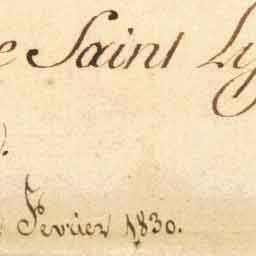 e Saint Ly
).
Fevrier 1830.